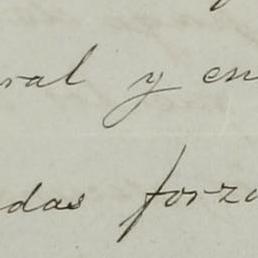 ral y en
das forzo